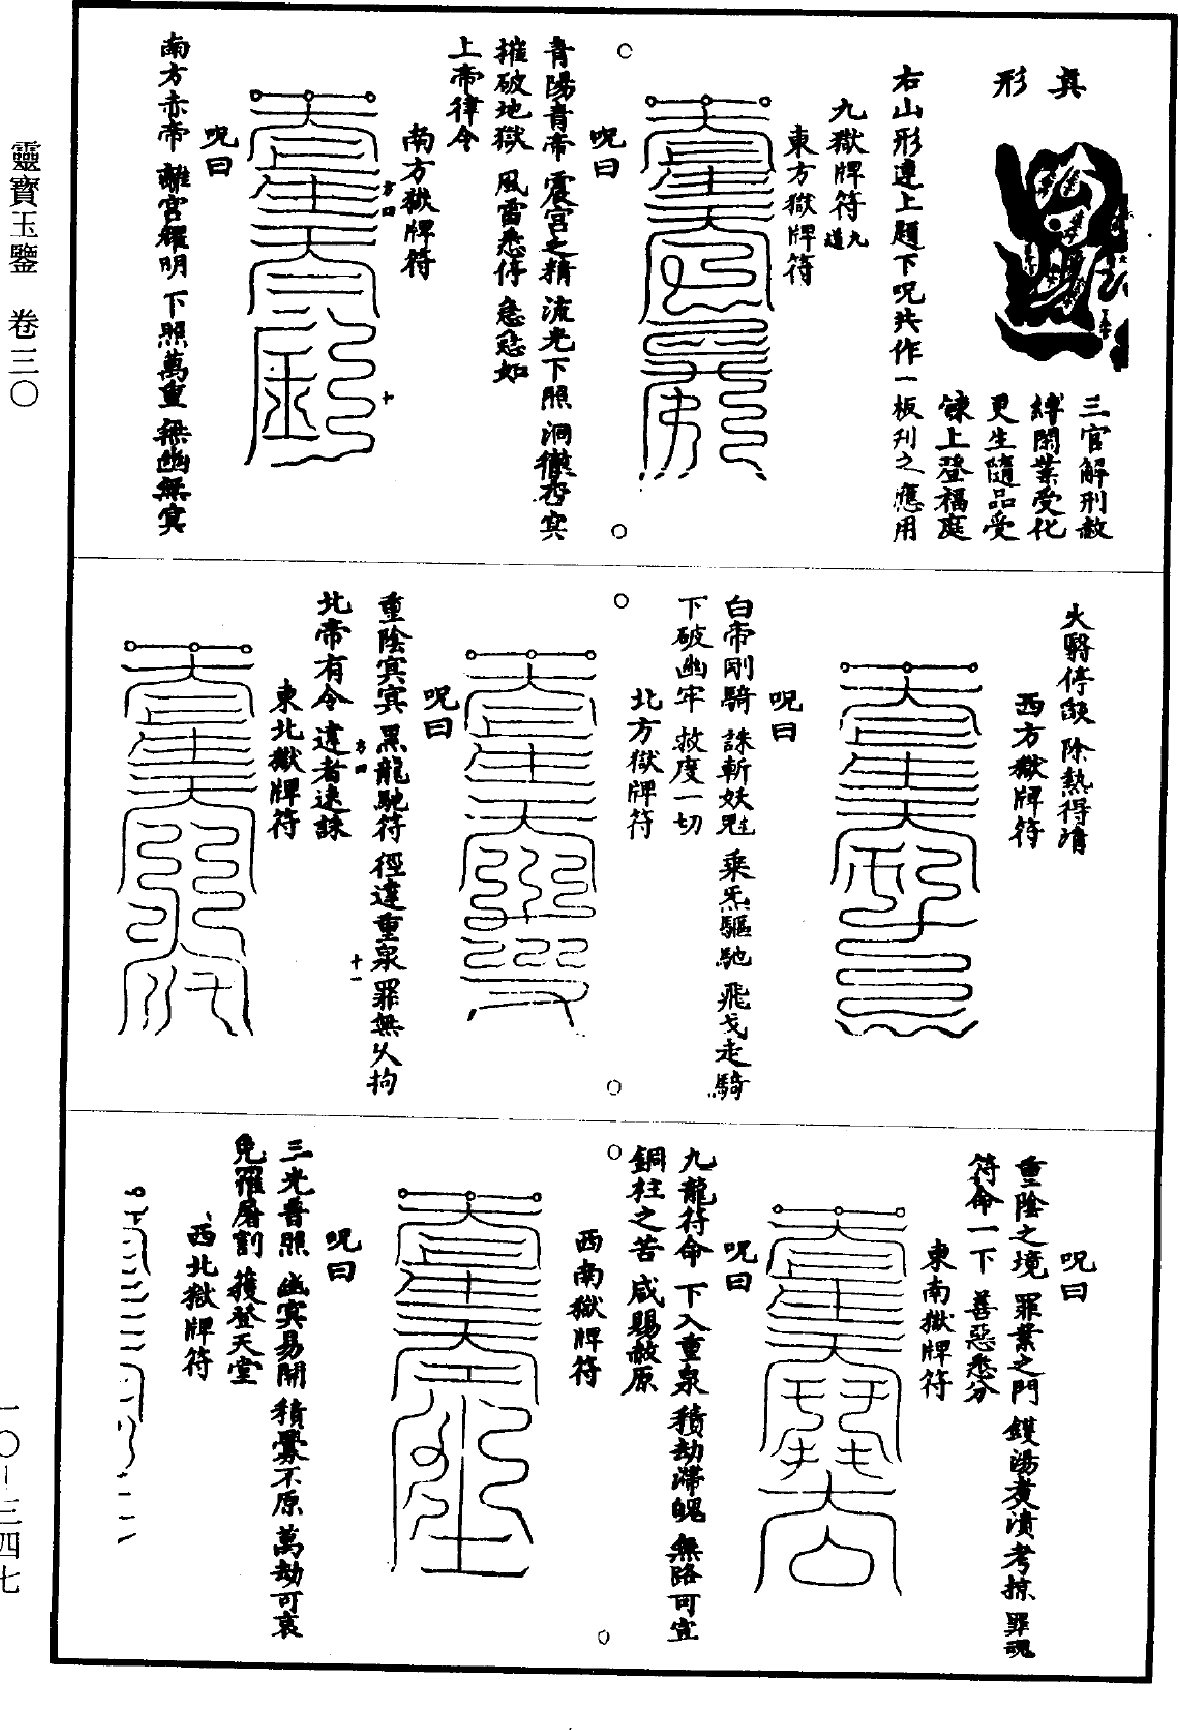 真形
三官解刑赦
縛閉業受化
更生隨品受
鍊上登福庭
右山形連上題下呪共作一板刋之應用
九獄牌符九道
東方獄牌符
呪曰
青陽青帝 震宮之精 流光下照 洞徹杳冥
摧破地獄 風雷悉停 急急如
上帝律令
南方獄牌符
呪曰
南方赤帝 離宮耀明 下照萬重 無幽無冥
火翳停
除熱得清
西方獄牌符
呪曰
白帝剛騎 誅斬妖魁 乘炁驅馳 飛戈走騎
下破幽牢 救度一切
北方獄牌符
呪曰
重陰冥冥 黑龍馳符 徑達重泉 罪無久拘
北帝有令 違者速誅
東北獄牌符
呪曰
重陰之境 罪業之門 鑊湯煑漬考掠 罪魂
符命一下 善惡悉分
東南獄牌符
呪曰
九龍符命 下入重泉 積劫滯魄 無路可宣
銅柱之苦 咸賜赦原
西南獄牌符
呪曰
三光普照 幽冥易開 積釁不原 萬劫可哀
免罹屠割 獲登天堂
西北獄牌符
靈寶玉鑒 卷三〇
一〇－三四七